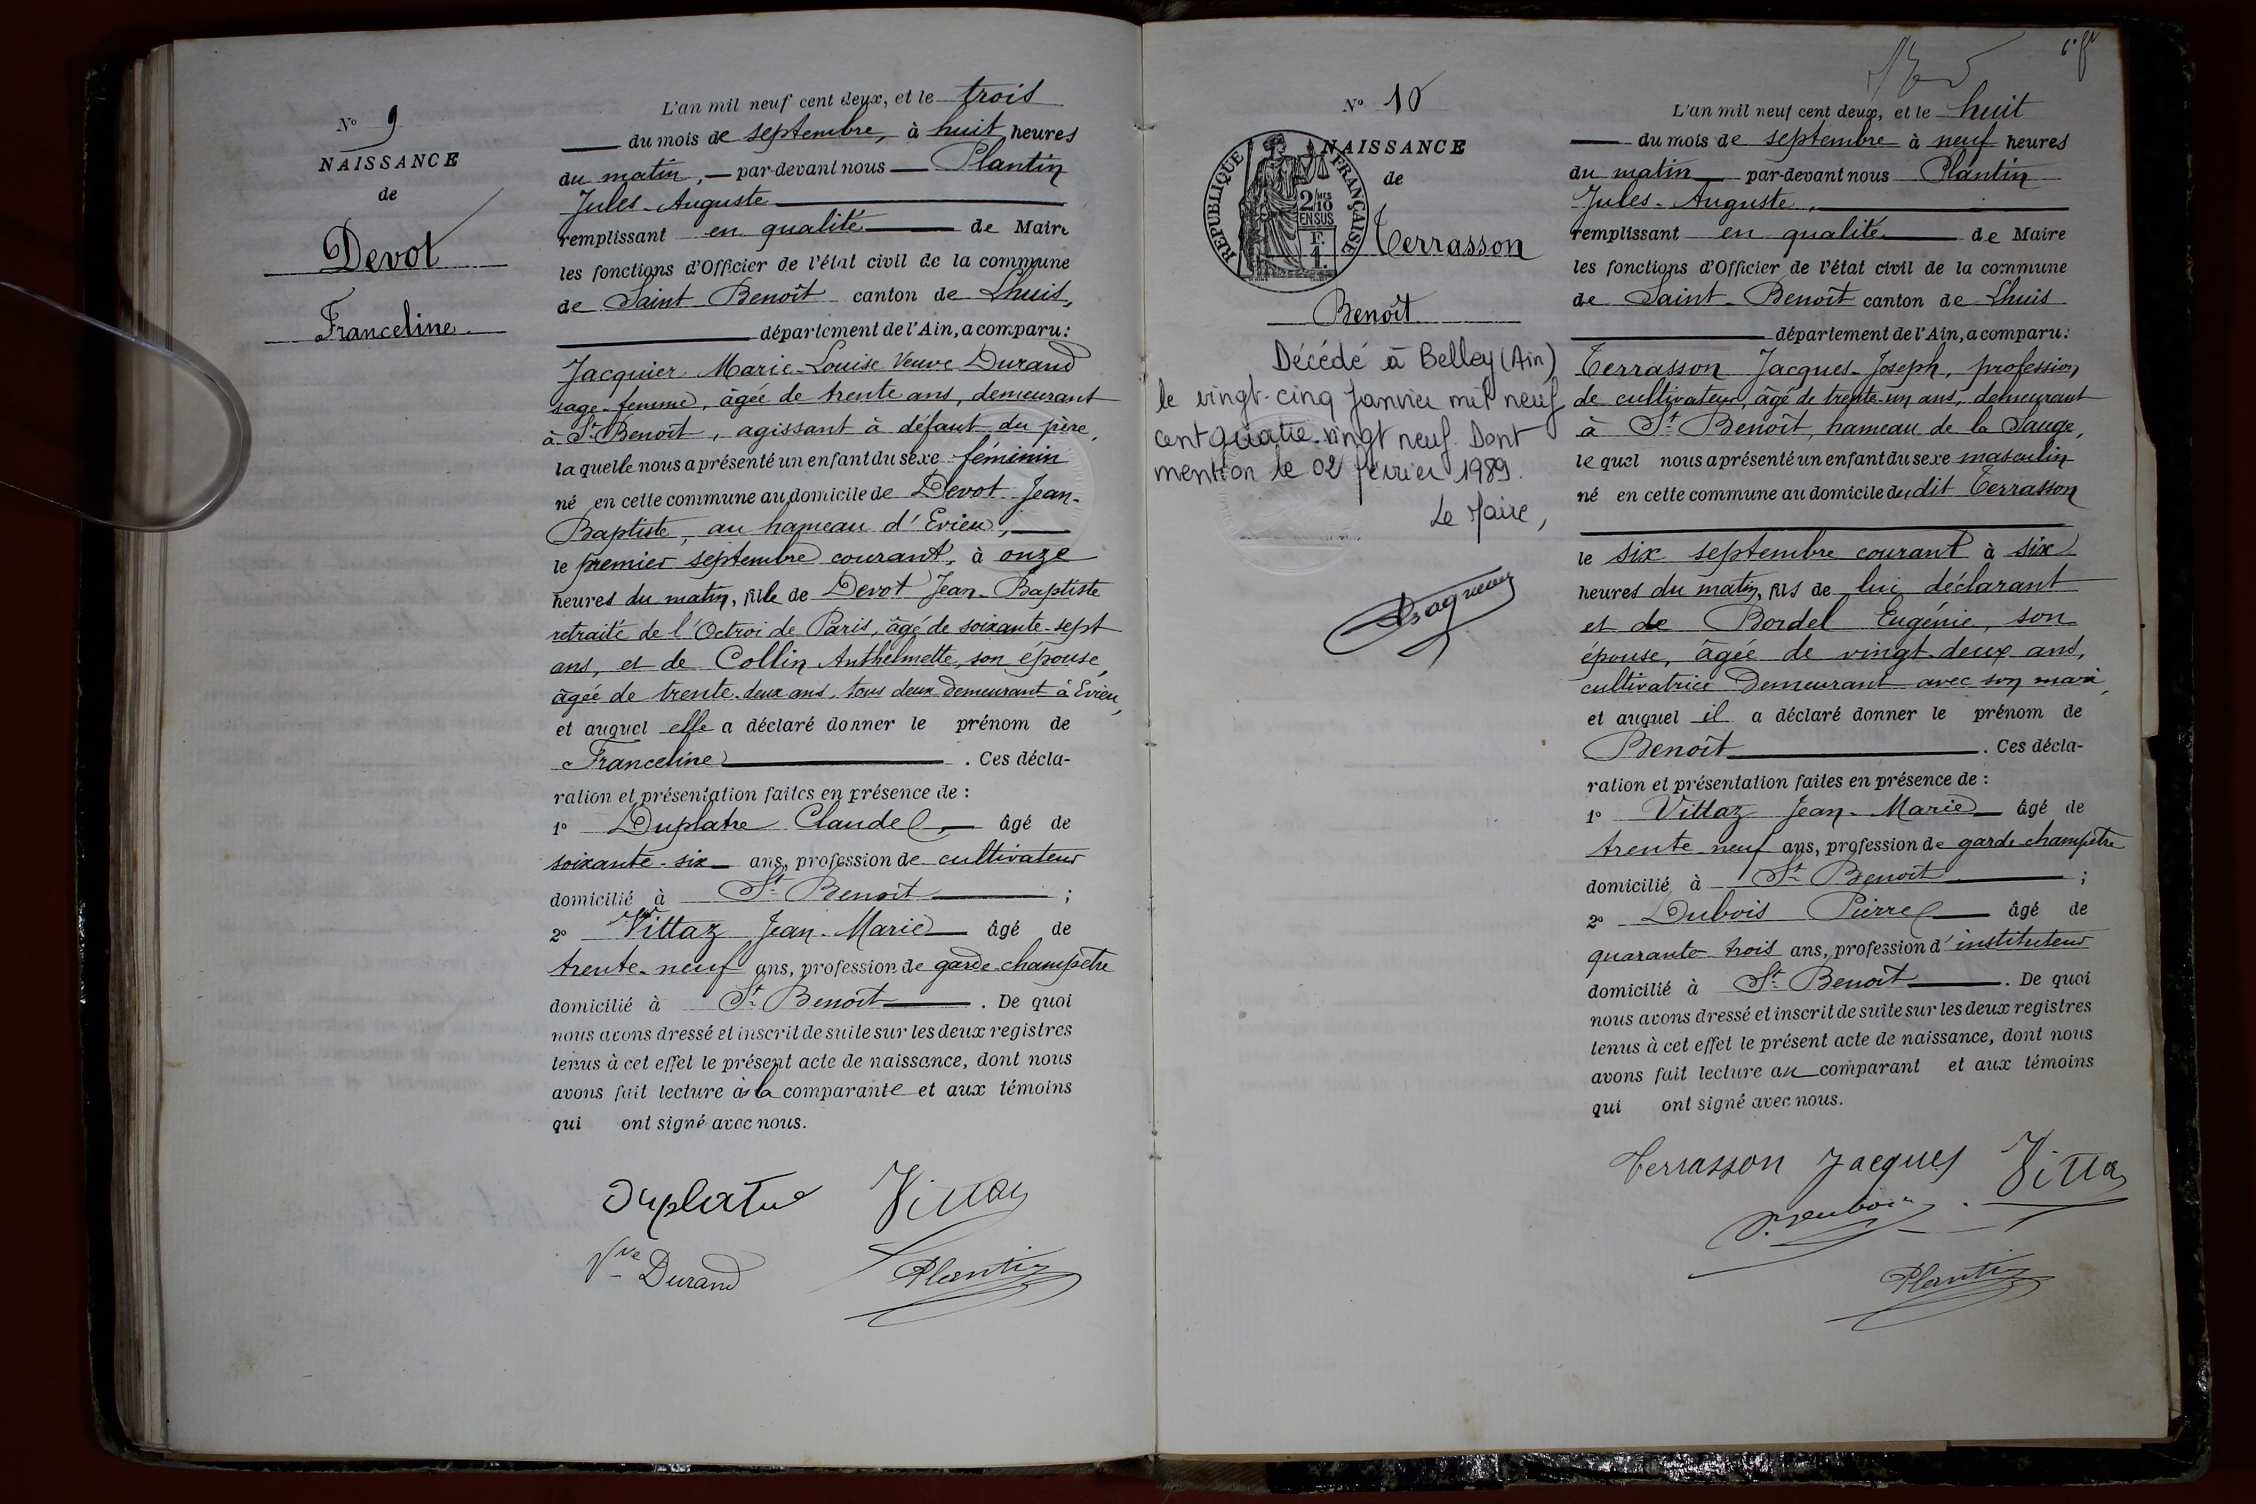 N° 9
NAISSANCE
de
Devot
Franceline
L'an mil neuf cent deux, et le trois
du mois de septembre, à huit heures
du matin, par-devant nous Plantin
Jules-Auguste
remplissant en qualité de Maire
les fonctions d'Officier de l'état civil de la commune
de Saint Benoît canton de Lhuis,
département de l'Ain, a comparu:
Jacquier Marie-Louise Veuve Durand
sage-femme, âgée de trente ans, demeurant
à St Benoît, agissant à défaut du père,
laquelle nous a présenté un enfant du sexe féminin
né en cette commune au domicile de Devot Jean-
Baptiste, au hameau d'Evieu,
le premier septembre courant, à onze
heures du matin, fille de Devot Jean-Baptiste
retraité de l'Octroi de Paris, âgé de soixante-sept
ans, et de Collin Anthelmette, son épouse,
âgée de trente-deux ans, tous deux demeurant à Evieu,
et auquel elle a déclaré donner le prénom de
Franceline. Ces décla-
ration et présentation faites en présence de :
1° Duplatre Claude, âgé de
soixante-six ans, profession de cultivateur
domicilié à St Benoît ;
2° Vittaz Jean-Marie âgé de
trente-neuf ans, profession de garde-champêtre
domicilié à St Benoît. De quoi
nous avons dressé et inscrit de suite sur les deux registres
tenus à cet effet le présent acte de naissance, dont nous
avons fait lecture à la comparante et aux témoins
qui ont signé avec nous.
Duplatre Vittaz
Vve Durand Plantin
N° 10
NAISSANCE
de
REPUBLIQUE FRANÇAISE
2/10MES
EN SUS
F.
1.
Terrasson
Benoît
Décédé à Belley (Ain)
le vingt-cinq Janvier mil neuf
cent quatre-vingt neuf. Dont
mention le 02 février 1989.
Le Maire,
L'an mil neuf cent deux, et le huit
du mois de septembre à neuf heures
du matin par-devant nous Plantin
Jules-Auguste,
remplissant en qualité de Maire
les fonctions d'Officier de l'état civil de la commune
de Saint-Benoît canton de Lhuis
département de l'Ain, a comparu:
Terrasson Jacques-Joseph, profession
de cultivateur, âgé de trente-un ans, demeurant
à St Benoît, hameau de la Sauge,
lequel nous a présenté un enfant du sexe masculin
né en cette commune au domicile dudit Terrasson
le six septembre courant à six
heures du matin, fils de lui déclarant
et de Bordel Eugénie, son
épouse, âgée de vingt-deux ans,
cultivatrice demeurant avec son mari,
et auquel il a déclaré donner le prénom de
Benoît. Ces décla-
ration et présentation faites en présence de :
1° Vittaz Jean-Marie âgé de
trente neuf ans, profession de garde-champêtre
domicilié à St Benoît ;
2° Dubois Pierre âgé de
quarante trois ans, profession d'instituteur
domicilié à St Benoît. De quoi
nous avons dressé et inscrit de suite sur les deux registres
tenus à cet effet le présent acte de naissance, dont nous
avons fait lecture au comparant et aux témoins
qui ont signé avec nous.
Terrasson Jacques Vittaz
Plantin